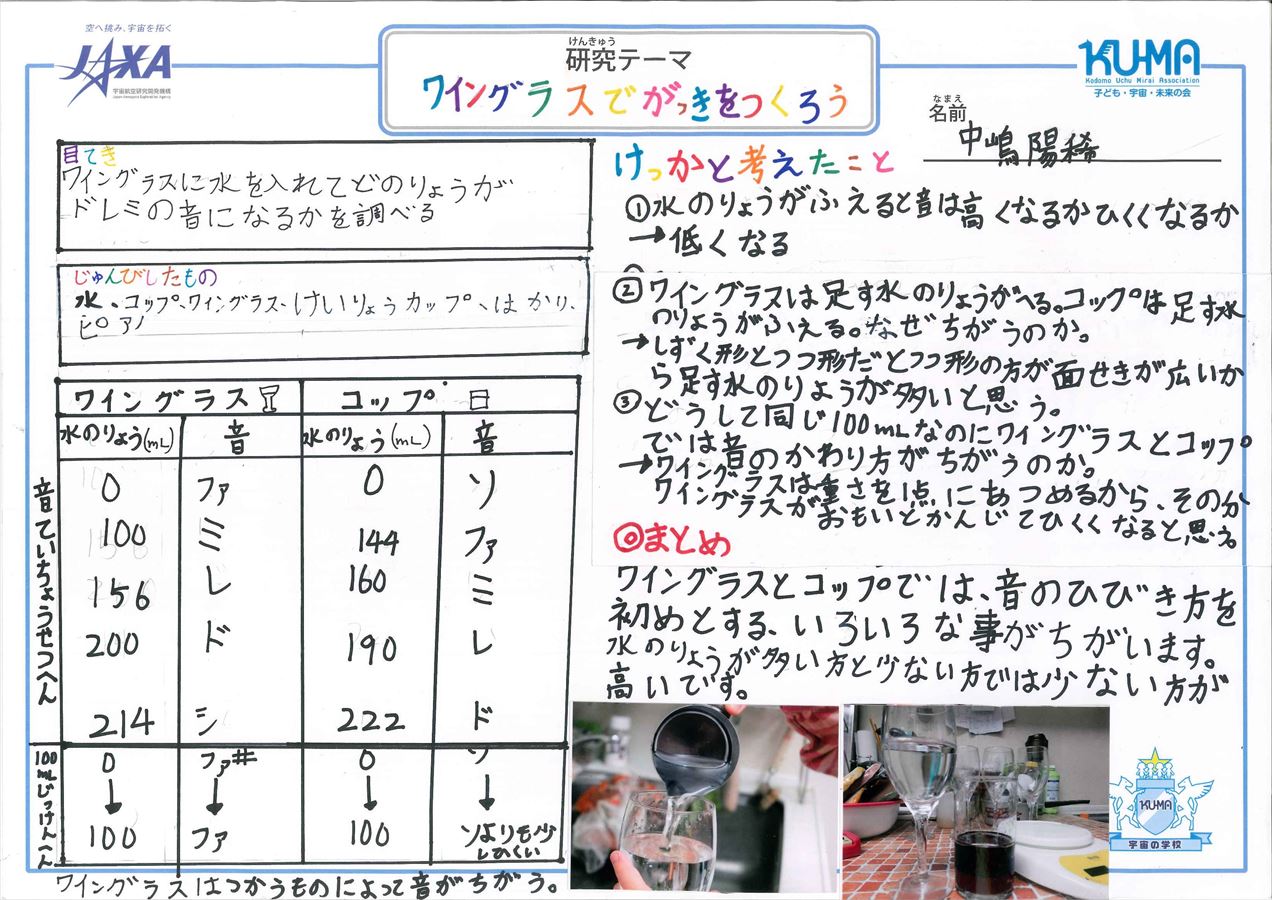 空へ挑み、宇宙を拓く
JAXA
宇宙航空研究開発機構
Japan Aerospace Exploration Agency
けんきゅう
研究テーマ
ワイングラスでがっきをつくろう
KU-MA
Kodomo Uchu Mirai Association
子ども・宇宙・未来の会
なまえ
名前
中嶋陽稀
目てき
ワイングラスに水を入れてどのりょうが
ドレミの音になるかを調べる
じゅんびしたもの
水、コップ、ワイングラス、けいりょうカップ、はかり、
ピアノ
ワイングラス コップ
水のりょう(mL) 音 水のりょう(mL) 音
音ていちょうせつへん
0 ファ 0 ソ
100 ミ 144 ファ
156 レ 160 ミ
200 ド 190 レ
214 シ 222 ド
100mLじっけんへん
0 ファ# 0 ソ
↓ ↓ ↓ ↓
100 ファ 100 ソよりも少
しひくい
ワイングラスはつかうものによって音がちがう。
けっかと考えたこと
①水のりょうがふえると音は高くなるかひくくなるか
→低くなる
②ワイングラスは足す水のりょうがへる。コップは足す水
のりょうがふえる。なぜちがうのか。
→しずく形とつつ形だとつつ形の方が面せきが広いか
ら足す水のりょうが多いと思う。
③どうして同じ100mLなのにワイングラスとコップ
では音のかわり方がちがうのか。
→ワイングラスは重さを1点にあつめるから、その分
ワイングラスがおもいとかんじてひくくなると思う。
◎まとめ
ワイングラスとコップでは、音のひびき方を
初めとする、いろいろな事がちがいます。
水のりょうが多い方と少ない方では少ない方が
高いです。
KU-MA
宇宙の学校